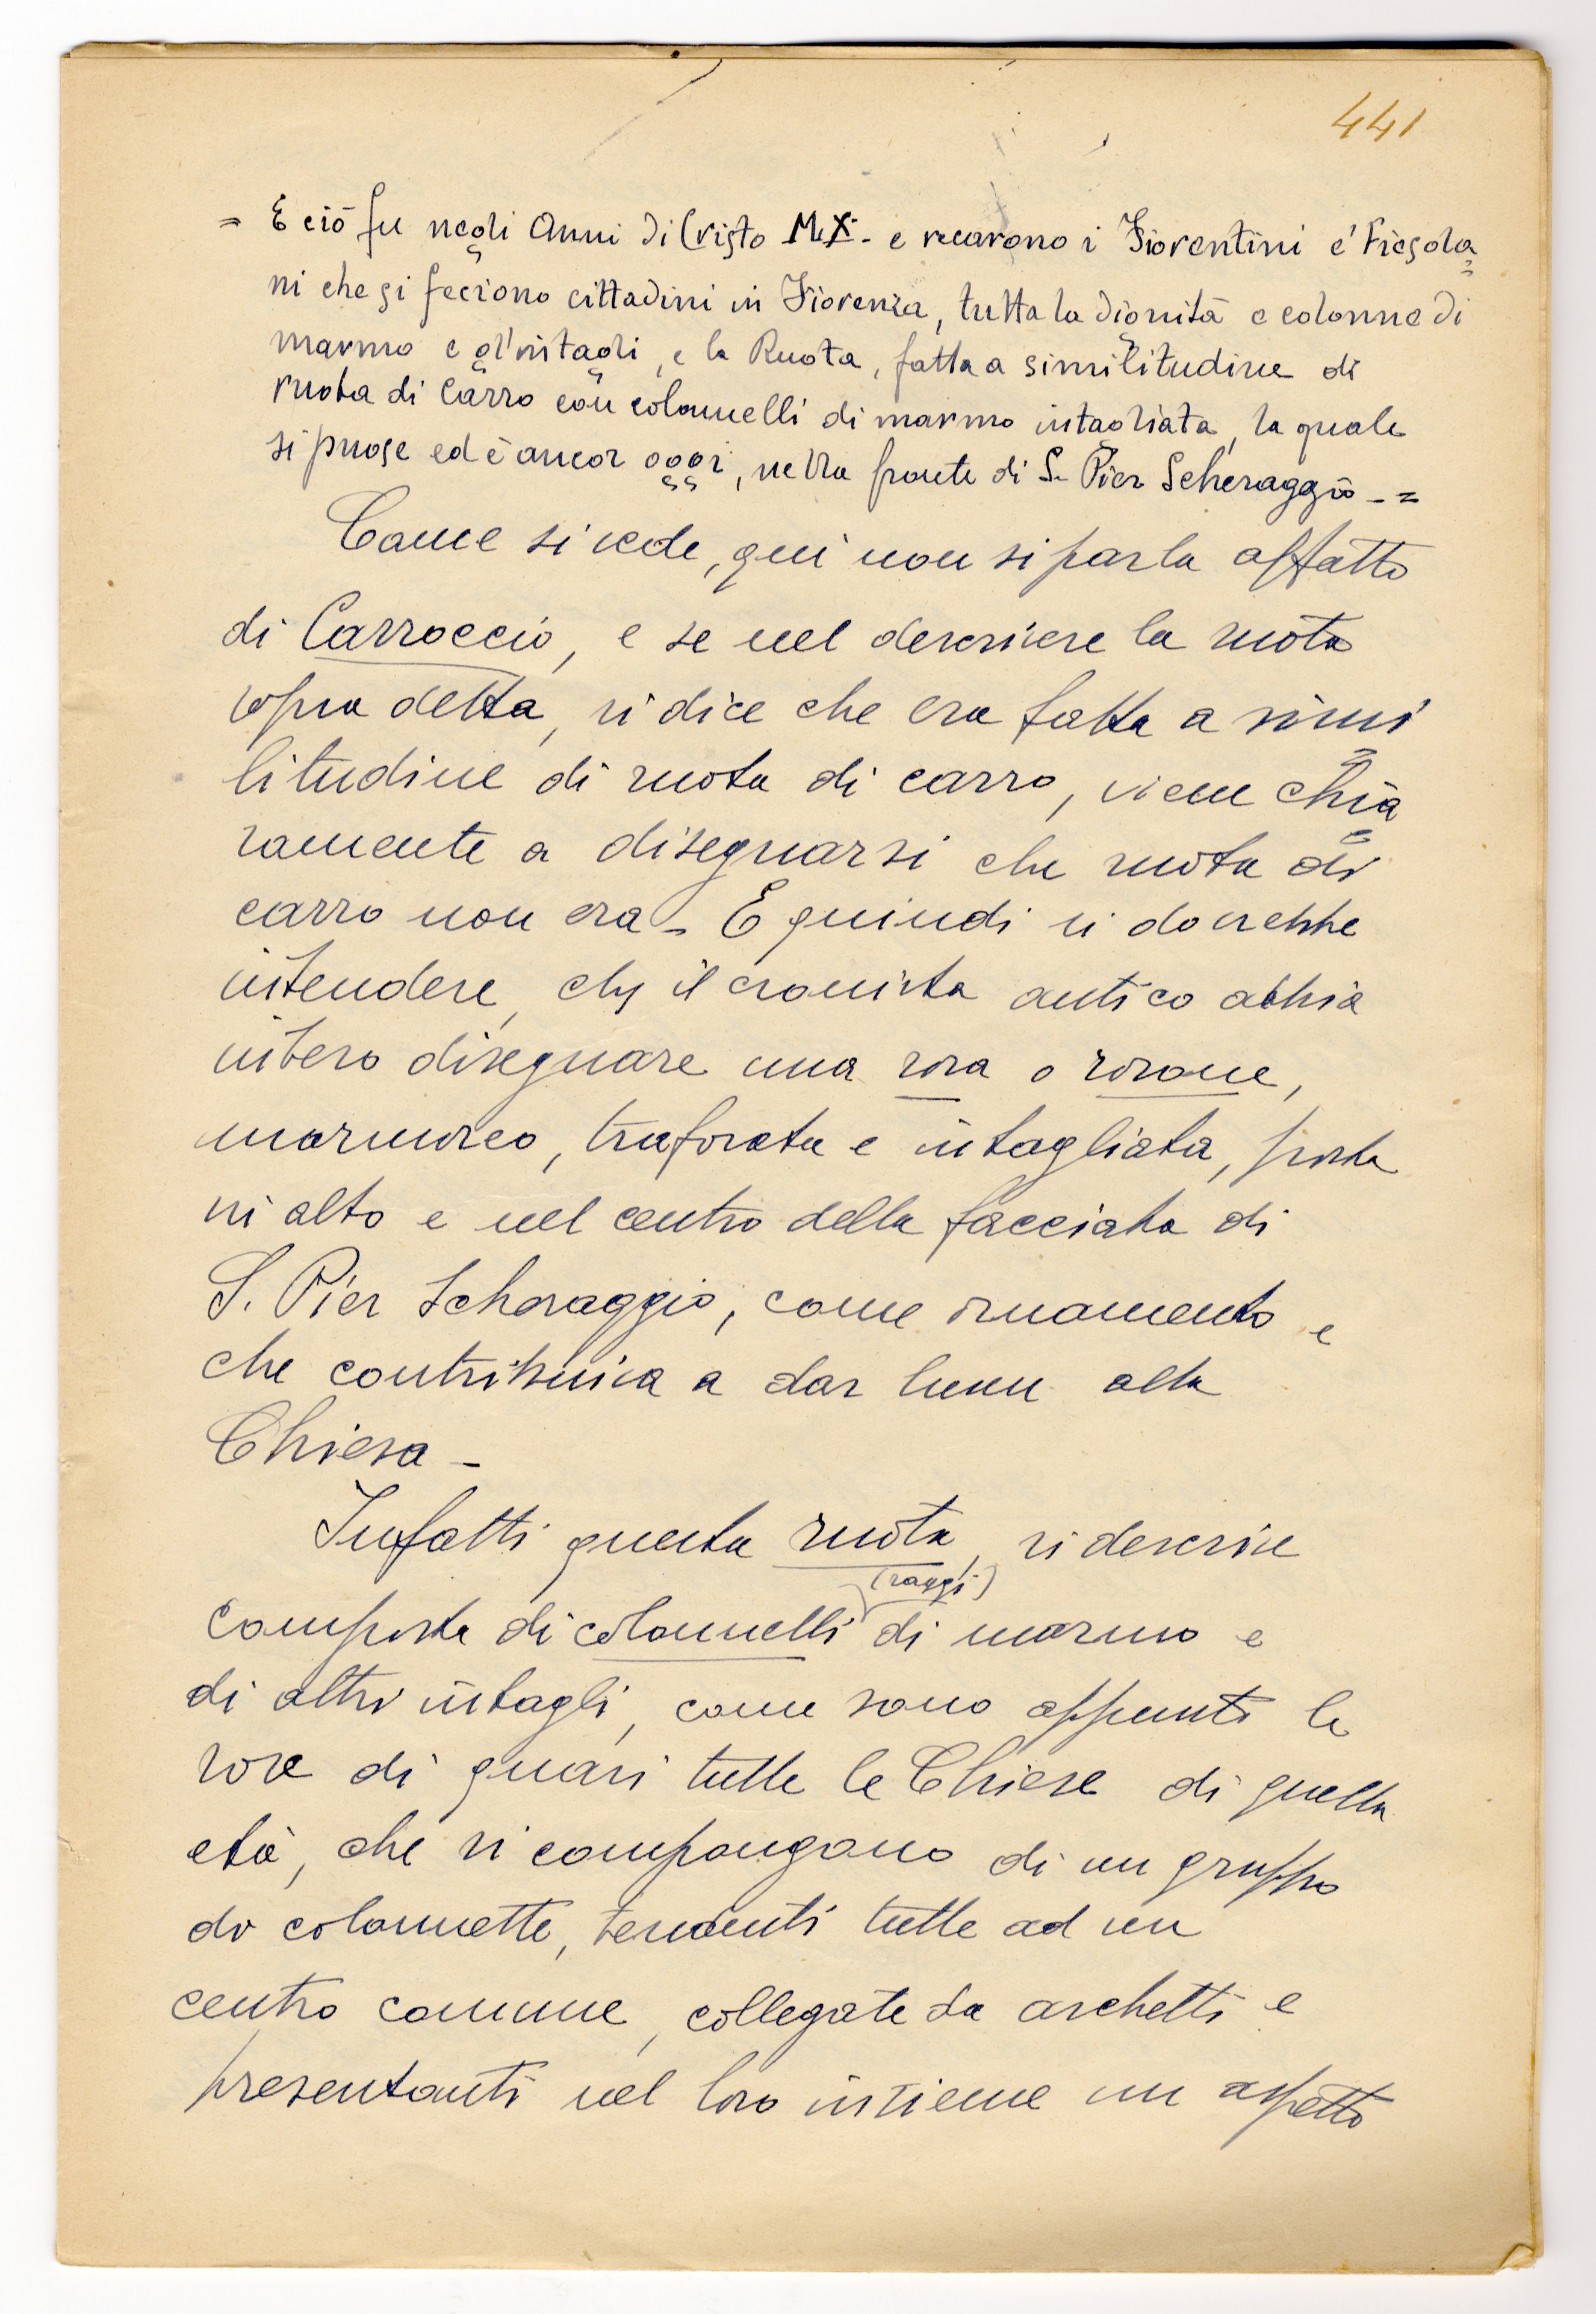 441
= E ciò fu negli Anni di Cristo MX - e recarono i Fiorentini e' Fiesola=
ni che si feciono cittadini in Fiorenza, tutta la dignità e colonne di
marmo e gl'intagli, e la Ruota, fatta a similitudine di
ruota di Carro con colonnelli di marmo intagliata, la quale
si puose ed è ancor oggi, nella fronte di S. Pier Scheraggio - =
Come si vede, qui non si parla affatto
di Carroccio, e se nel descrivere la ruota
sopra detta, si dice che era fatta a simi=
litudine di ruota di carro, viene chia=
ramente a disegnarsi che ruota di
carro non era - E quindi si dovrebbe
intendere, che il cronista antico abbia
inteso disegnare una rosa o rosone,
marmoreo, traforata e intagliata, posta
in alto e nel centro della facciata di
S. Pier Scheraggio, come ornamento e
che contribuiva a dar lume alla
Chiesa -
Infatti questa ruota, si descrive
(raggi)
composta di colonnelli di marmo e
di altri intagli, come sono appunto le
rose di quasi tutte le Chiese di quella
età, che si compongono di un gruppo
di colonnette, tenenti tutte ad un
centro comune, collegate da archetti e
presentanti nel loro insieme un aspetto